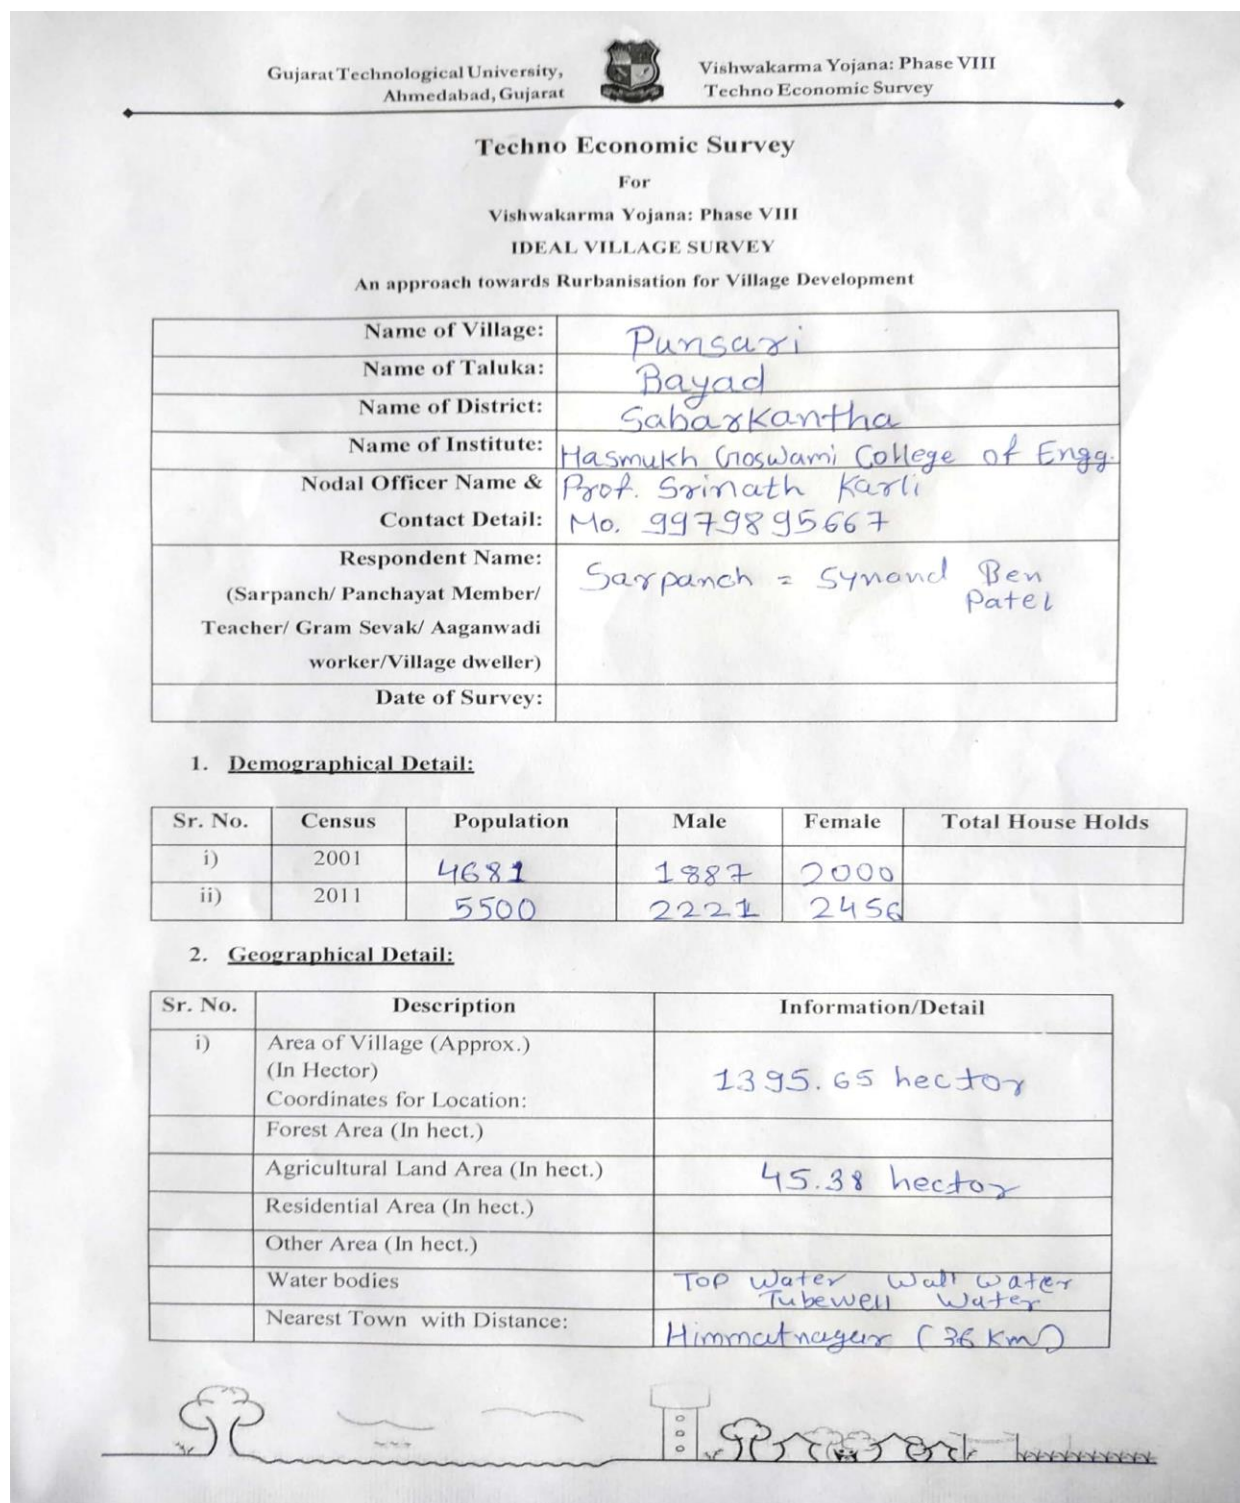 Gujarat Technological University,
Ahmedabad, Gujarat
Vishwakarma Yojana: Phase VIII
Techno Economic Survey
Techno Economic Survey
For
Vishwakarma Yojana: Phase VIII
IDEAL VILLAGE SURVEY
An approach towards Rurbanisation for Village Development
Name of Village: Punsari
Name of Taluka: Bayad
Name of District: Sabarkantha
Name of Institute: Hasmukh Goswami College of Engg.
Nodal Officer Name & Prof. Srinath Karli
Contact Detail: Mo. 9979895667
Respondent Name: Sarpanch = Synand Ben
(Sarpanch/ Panchayat Member/ Patel
Teacher/ Gram Sevak/ Aaganwadi
worker/Village dweller)
Date of Survey:
1. Demographical Detail:
Sr. No. Census Population Male Female Total House Holds
i) 2001 4681 1887 2000
ii) 2011 5500 2221 2456
2. Geographical Detail:
Sr. No. Description Information/Detail
i) Area of Village (Approx.)
(In Hector) 1395.65 hector
Coordinates for Location:
Forest Area (In hect.)
Agricultural Land Area (In hect.) 45.38 hector
Residential Area (In hect.)
Other Area (In hect.)
Water bodies Top Water Wall water
Tubewell Water
Nearest Town with Distance: Himmatnagar (36 Km)